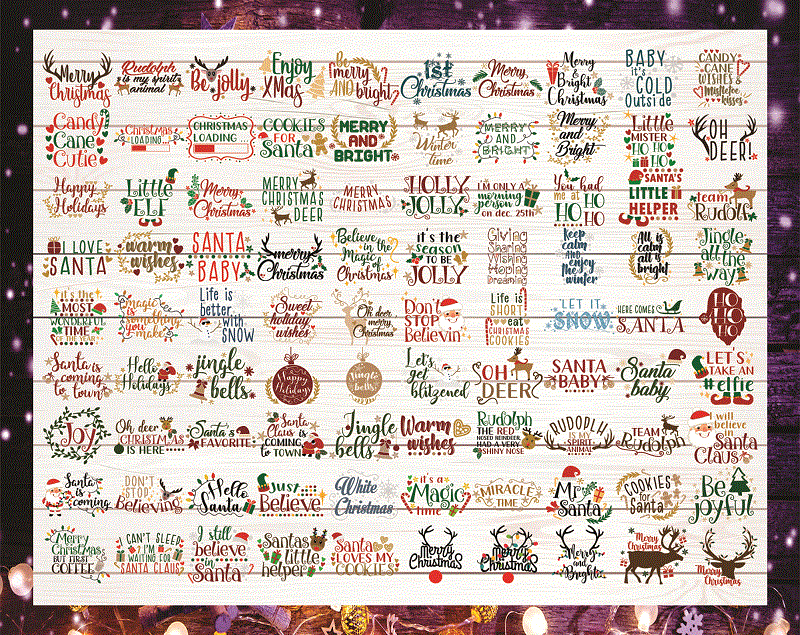 Merry
Christmas
Rudolph
is my spirit
animal
Be jolly
Enjoy
XMas
be
merry
AND bright
1st
Christmas
Merry
Christmas
Merry
&
Bright
Christmas
BABY
it's
COLD
Outside
CANDY
CANE
WISHES &
Mistletoe
kisses
Candy
Cane
Cutie
Christmas
LOADING...
CHRISTMAS
LOADING...
COOKIES
FOR
Santa
MERRY
AND
BRIGHT
Winter
time
MERRY
AND
BRIGHT
Merry
and
Bright
Little
MISTER
HO HO
HO
OH
DEER!
Happy
Holidays
Little
ELF
Merry
Christmas
MERRY
CHRISTMAS
DEER
MERRY
CHRISTMAS
HOLLY
JOLLY
I'M ONLY A
morning
person
on dec. 25th
You had
me at
HO
HO HO
SANTA'S
LITTLE
HELPER
team
Rudolh
I LOVE
SANTA
warm
wishes
SANTA
BABY
merry
Christmas
Believe
in the
Magic
of
Christmas
it's the
season
TO BE
JOLLY
Giving
Sharing
Wishing
Hoping
Dreaming
keep
calm
AND
enjoy
the
winter
All is
calm
all is
bright
Jingle
all the
way
it's the
MOST
WONDERFUL
TIME
OF THE YEAR
Magic
is
something
you
make
Life is
better
with
SNOW
Sweet
holiday
wishes
Oh deer
merry
Christmas
Don't
STOP
Believin'
Life is
SHORT
eat
CHRISTMAS
COOKIES
LET IT
SNOW
HERE COMES
SANTA
HO
HO
HO
Santa is
coming
to town
Hello
Holidays
jingle
bells
Happy
Holiday
Jingle
Bells
Let's
get
blitzened
OH
DEER
SANTA
BABY
Santa
baby
LET'S
TAKE AN
#elfie
Joy
Oh deer
CHRISTMAS
IS HERE
Santa's
FAVORITE
Santa
Claus is
COMING
TO TOWN
Jingle
bells
Warm
wishes
Rudolph
THE RED
NOSED REINDEER
HAD A VERY
SHINY NOSE
RUDOPLH
IS MY
SPIRIT
ANIMAL
TEAM
Rudolph
I will
believe
in
Santa
Claus
Santa
is coming
DON'T
STOP
Believing
Hello
Santa
JUST
Believe
White
Christmas
it's a
Magic
TIME
MIRACLE
TIME
Mr
Santa
COOKIES
for
Santa
Be
joyful
Merry
Christmas
BUT FIRST
COFFEE
I CAN'T SLEEP
I'M
WAITING FOR
SANTA CLAUS
I still
believe
in
Santa
Santas
little
helper
Santa
LOVES MY
COOKIES
merry
CHRISTMAS
merry
CHRISTMAS
Merry
and
Bright
Merry
Christmas
Merry
Christmas